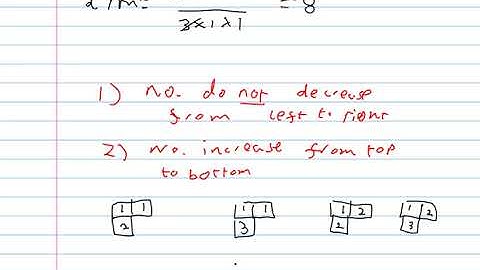 = 8
3x1x1
1) no. do not decrease
from left to right
2) no. increase from top
to bottom
1 1 1 1 1 2 1 2
2 3 2 3